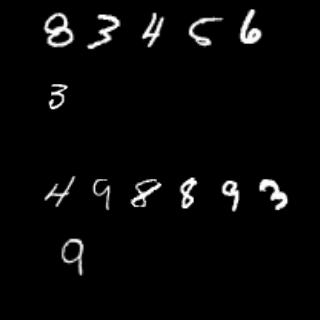 83456
3
498893
9